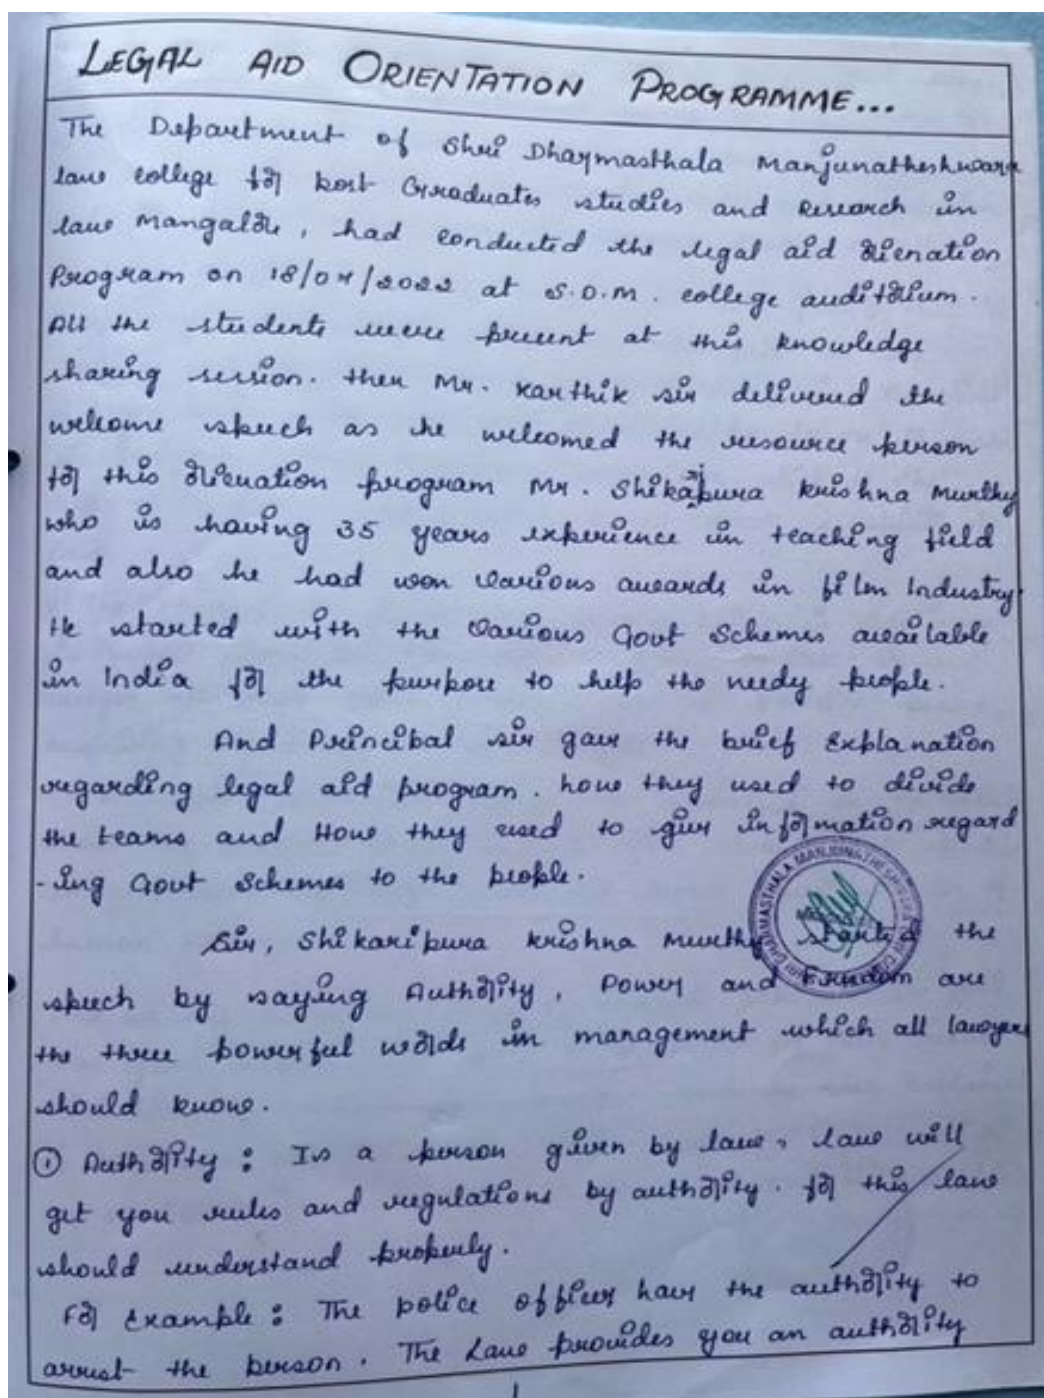 LEGAL AID ORIENTATION PROGRAMME...
The Department of Shri Dharmasthala Manjunatheshwara
law college for Post Graduates studies and Research in
law Mangalore, had conducted the legal aid orienation
Program on 18/04/2022 at S.D.M. college auditorium.
All the students were present at this knowledge
sharing session. then Mr. Karthik sir delivered the
welcome speech as he welcomed the resource person
for this orienation program Mr. Shikaripura Krishna Murthy
who is having 35 years experience in teaching field
and also he had won various awards in film Industry.
He started with the various Govt Schemes available
in India for the purpose to help the needy people.
And Principal sir gave the brief Explanation
regarding legal aid program. how they used to divide
the teams and How they used to give information regard
-ing Govt Schemes to the people.
Sir, Shikaripura Krishna Murthy started the
speech by saying Authority, Power and Freedom are
the three powerful words in management which all lawyers
should know.
① Authority : Is a person given by law, law will
get you rules and regulations by authority. for this law
should understand properly.
For Example : The police officer have the authority to
arrest the person. The Law provides you an authority